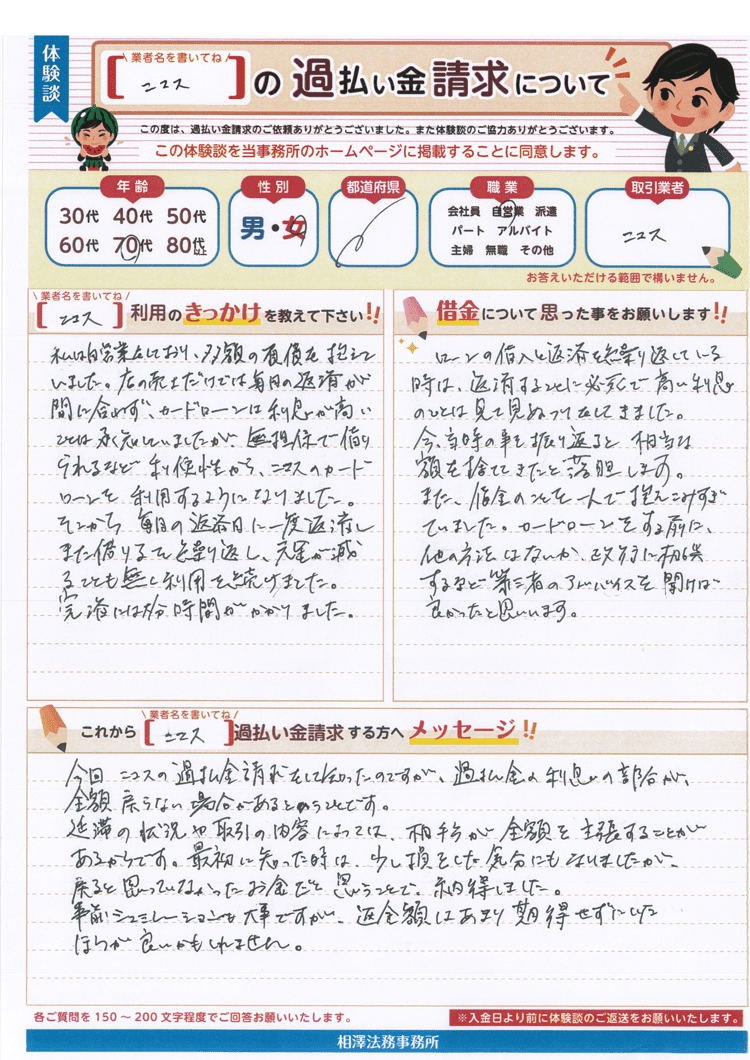 体験談
\ 業者名を書いてね /
[ ニコス ] の 過払い金請求について
この度は、過払い金請求のご依頼ありがとうございました。また体験談のご協力ありがとうございます。
この体験談を当事務所のホームページに掲載することに同意します。
年齢
30代 40代 50代
60代 70代 80代以上
性別
男・女
都道府県
職業
会社員 自営業 派遣
パート アルバイト
主婦 無職 その他
取引業者
ニコス
お答えいただける範囲で構いません。
\ 業者名を書いてね /
[ ニコス ] 利用のきっかけを教えて下さい!!
私は自営業をしており、多額の負債を抱えて
いました。店の売上だけでは毎日の返済が
間に合わず、カードローンは利息が高い
ことは承知していましたが、無担保で借り
られるなど利便性から、ニコスのカード
ローンを利用するようになりました。
そこから毎月の返済日に一度返済し
また借りるを繰り返し、元金が減
ることも無く利用を続けました。
完済には大分時間がかかりました。
借金について思った事をお願いします!!
ローンの借入と返済を繰り返している
時は、返済することに必死で高い利息
のことは見て見ぬふりをしてきました。
今、当時の事を振り返ると相当な
額を捨ててきたと落胆します。
また、借金のことを一人で抱えこみすぎ
ていました。カードローンをする前に、
他の方法はないか、政行に相談
するなど第三者のアドバイスを聞けば
良かったと思います。
これから
\ 業者名を書いてね /
[ ニコス ] 過払い金請求する方へメッセージ!!
今回ニコスの過払金請求をして知ったのですが、過払金の利息の部分が、
全額戻らない場合があるということです。
延滞の状況や取引の内容によっては、相手方が全額を主張することが
あるからです。最初に知った時は、少し損をした気分にもなりましたが、
戻ると思っていなかったお金だと思うことで、納得しました。
事前シュミレーションも大事ですが、返金額はあまり期待せずにいた
ほうが良いかもしれません。
各ご質問を150～200文字程度でご回答お願いいたします。
※入金日より前に体験談のご返送をお願いいたします。
相澤法務事務所